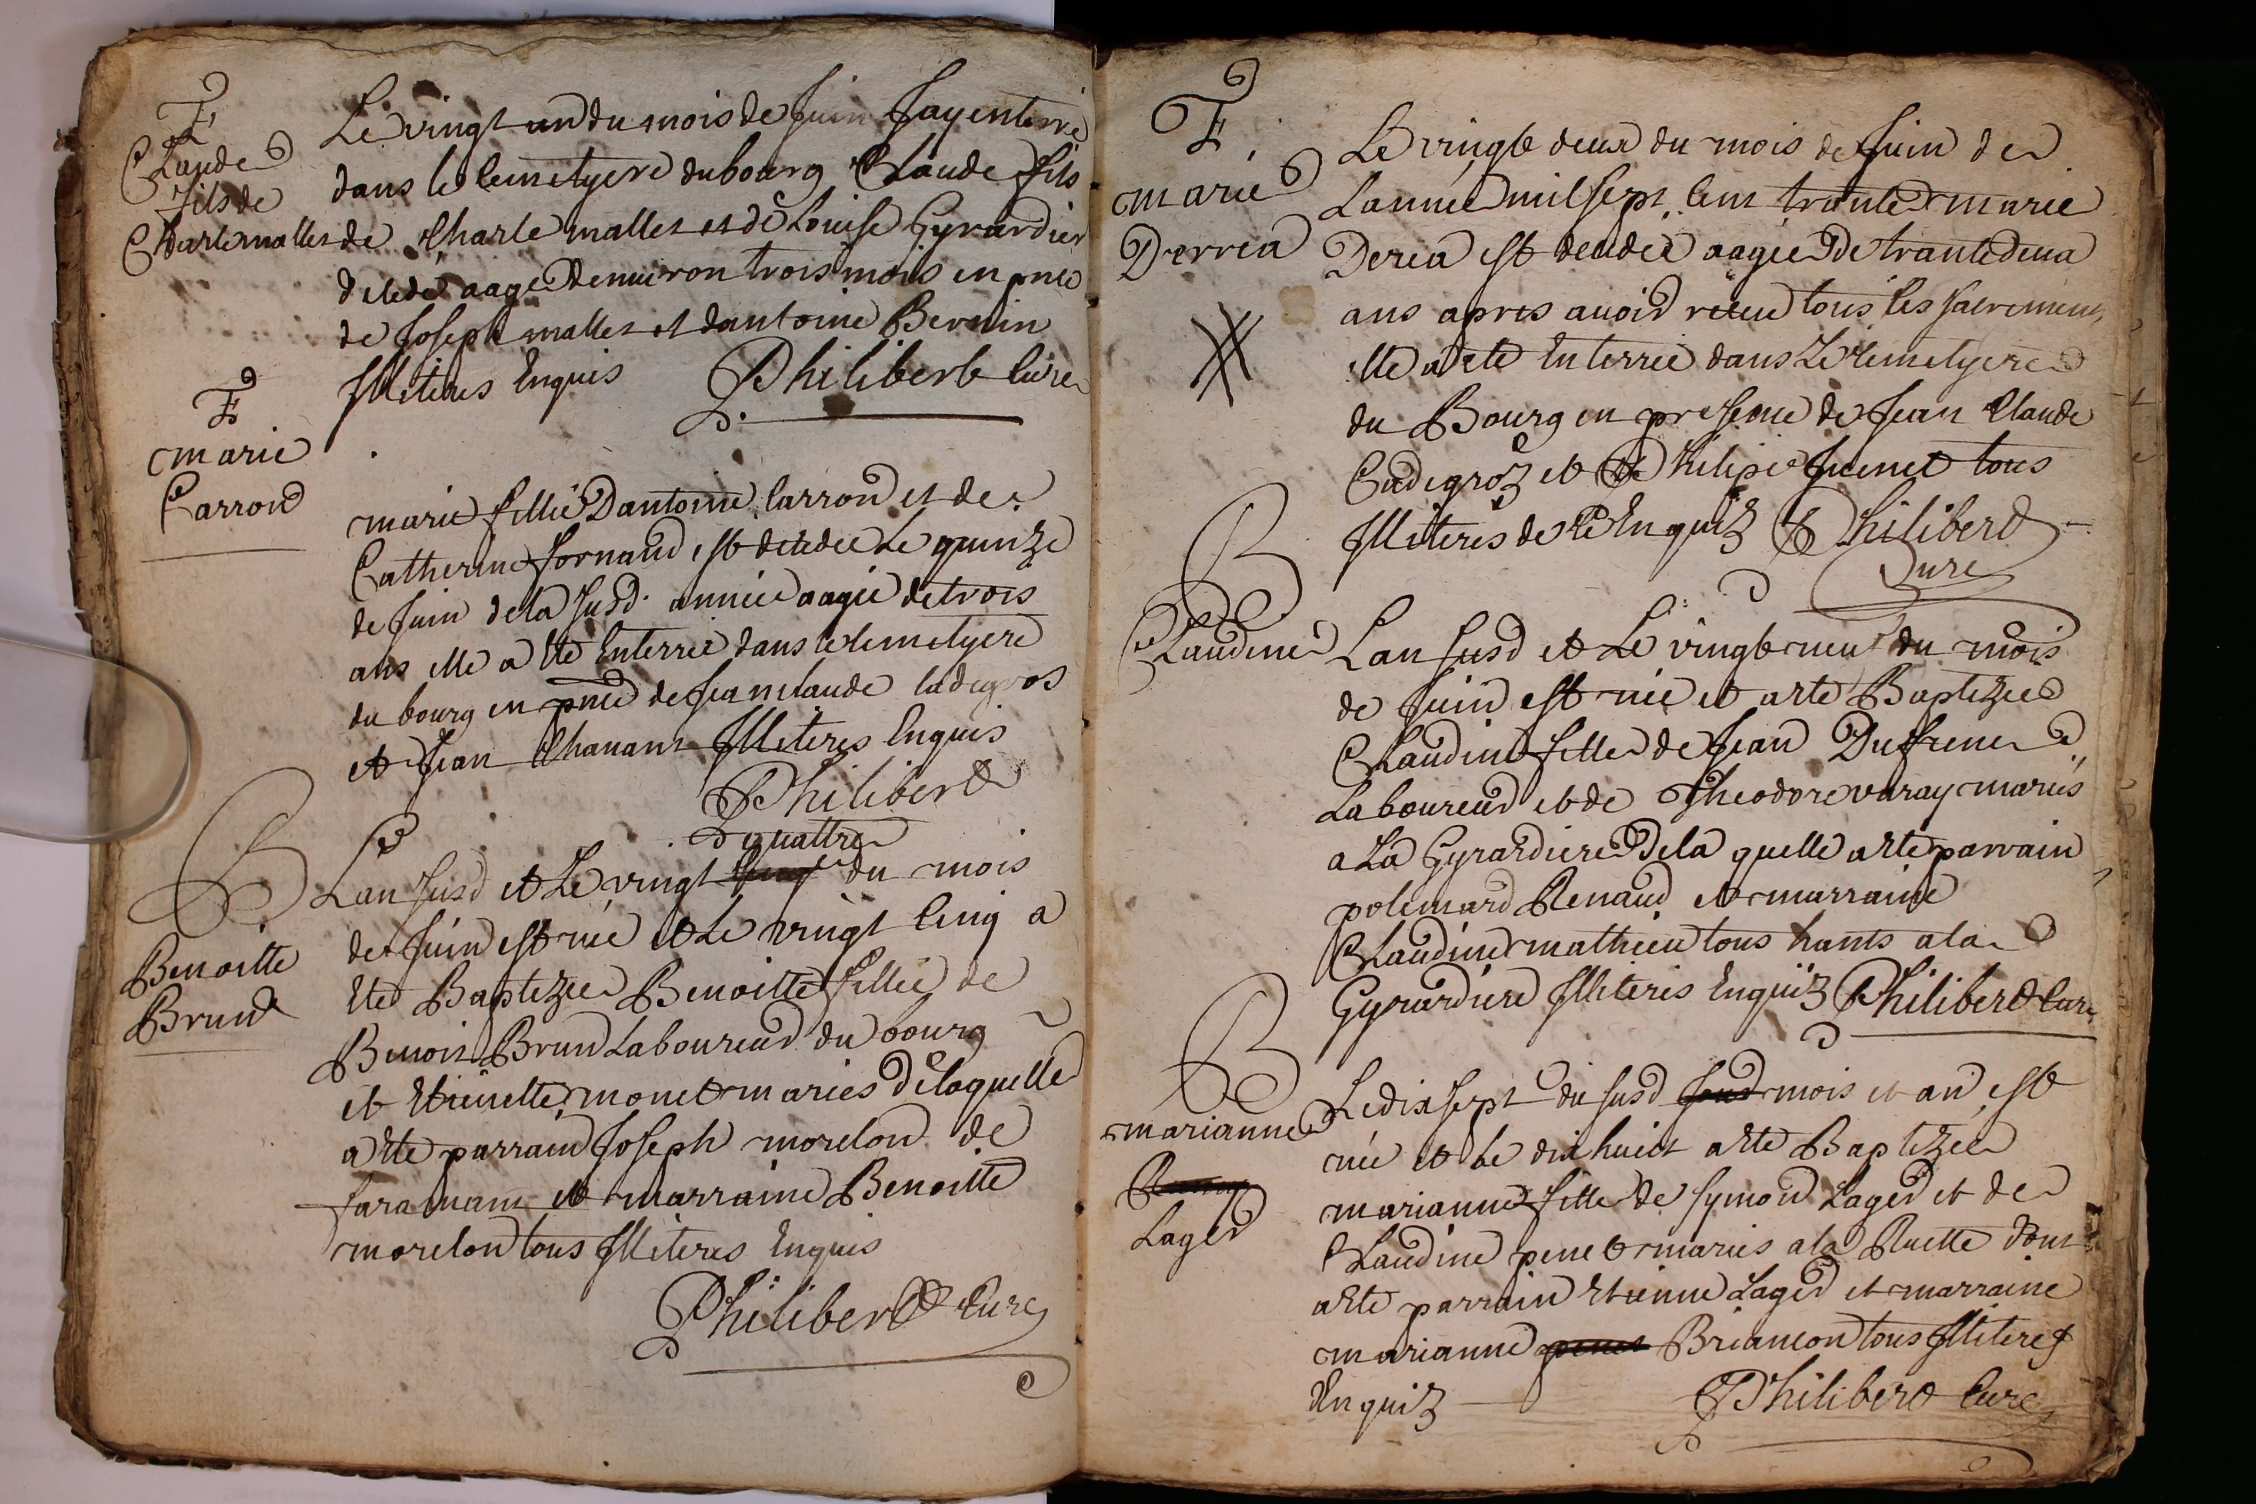 E
Claude
fils de
Charle mallet
Le vingt un du mois de Juin Jay enterré
dans le Cemetyere du bourg Claude fils
de Charle mallet et de Louise Gyrardier
décédé aagé denuiron trois mois en pnce
de Joseph mallet et dantoine Bernin
Illiteres Enquis Philibert Curé
E
marie
Carron
marie fillie Dantoine Carron et de
Catherine fornand est décédée Le quinze
de Juin de la susd. année aagée de trois
ans elle a Eté Enterrée dans le Cemetyere
du bourg en pnce de Jean Claude Cadegros
et Jean Chanant Illiteres Enquis
Philibert
B
Benoitte
Brun
quattre
Lan susd et Le vingt du mois
de Juin est née et Le vingt Cinq a
Eté Baptizée Benoitte fillie de
Benoit Brun Laboureur du bourg
et Etienette monet mariés de laquelle
a Eté parrain Joseph morelon de
faramans et marraine Benoitte
morelon tous Illiteres Enquis
Philibert Curé
E
marie
Derrea
Le vingt deux du mois de Juin de
Lannée mil sept Cent trante marie
Derea est décédée aagée De trante deux
ans apres auoir reçeu tous les sacrements
elle a eté Enterrée dans Le Cemetyere
du Bourg en presence de Jean Claude
Cadegroz et Philipe Juenet tous
Illiteres de ce Enquiz Philibert
Curé
B
Claudine
Lan susd et Le vingt neuf du mois
de Juin est née et a eté Baptizée
Claudine fille de Jean Dufrene
Laboureur et de Theodore varay mariés
a La Gyrardiere De la quelle a eté parrain
polemard Renaud et marraine
Claudine mathieu tous hants a la
Gyrardiere Illiteres Enquiz Philibert Curé
B
marianne
Lager
Le dix sept du susd mois et an est
née et Le dix huict a eté Baptizée
marianne fille de symon Lager et de
Claudine penet mariés a la Ruette dont
a eté parrain Etienne Lager et marraine
marianne penet Briancon tous Illiteres
Enquiz Philibert Curé